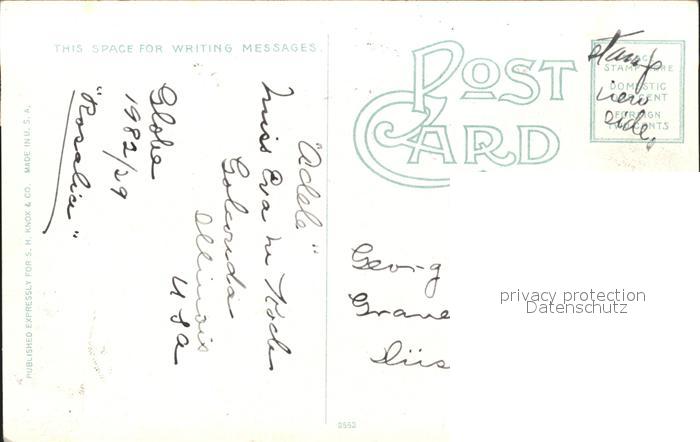 THIS SPACE FOR WRITING MESSAGES.
POST CARD
PLACE STAMP HERE
DOMESTIC ONE CENT
FOREIGN TWO CENTS
stamp
view
side.
"Adela"
Miss Eva M Koch
Golconda
Illinois
USA
Globe
1982/29
"Rosalia"
Georg
Grave
Düs
privacy protection
Datenschutz
PUBLISHED EXPRESSLY FOR S. H. KNOX & CO. MADE IN U.S.A.
0552